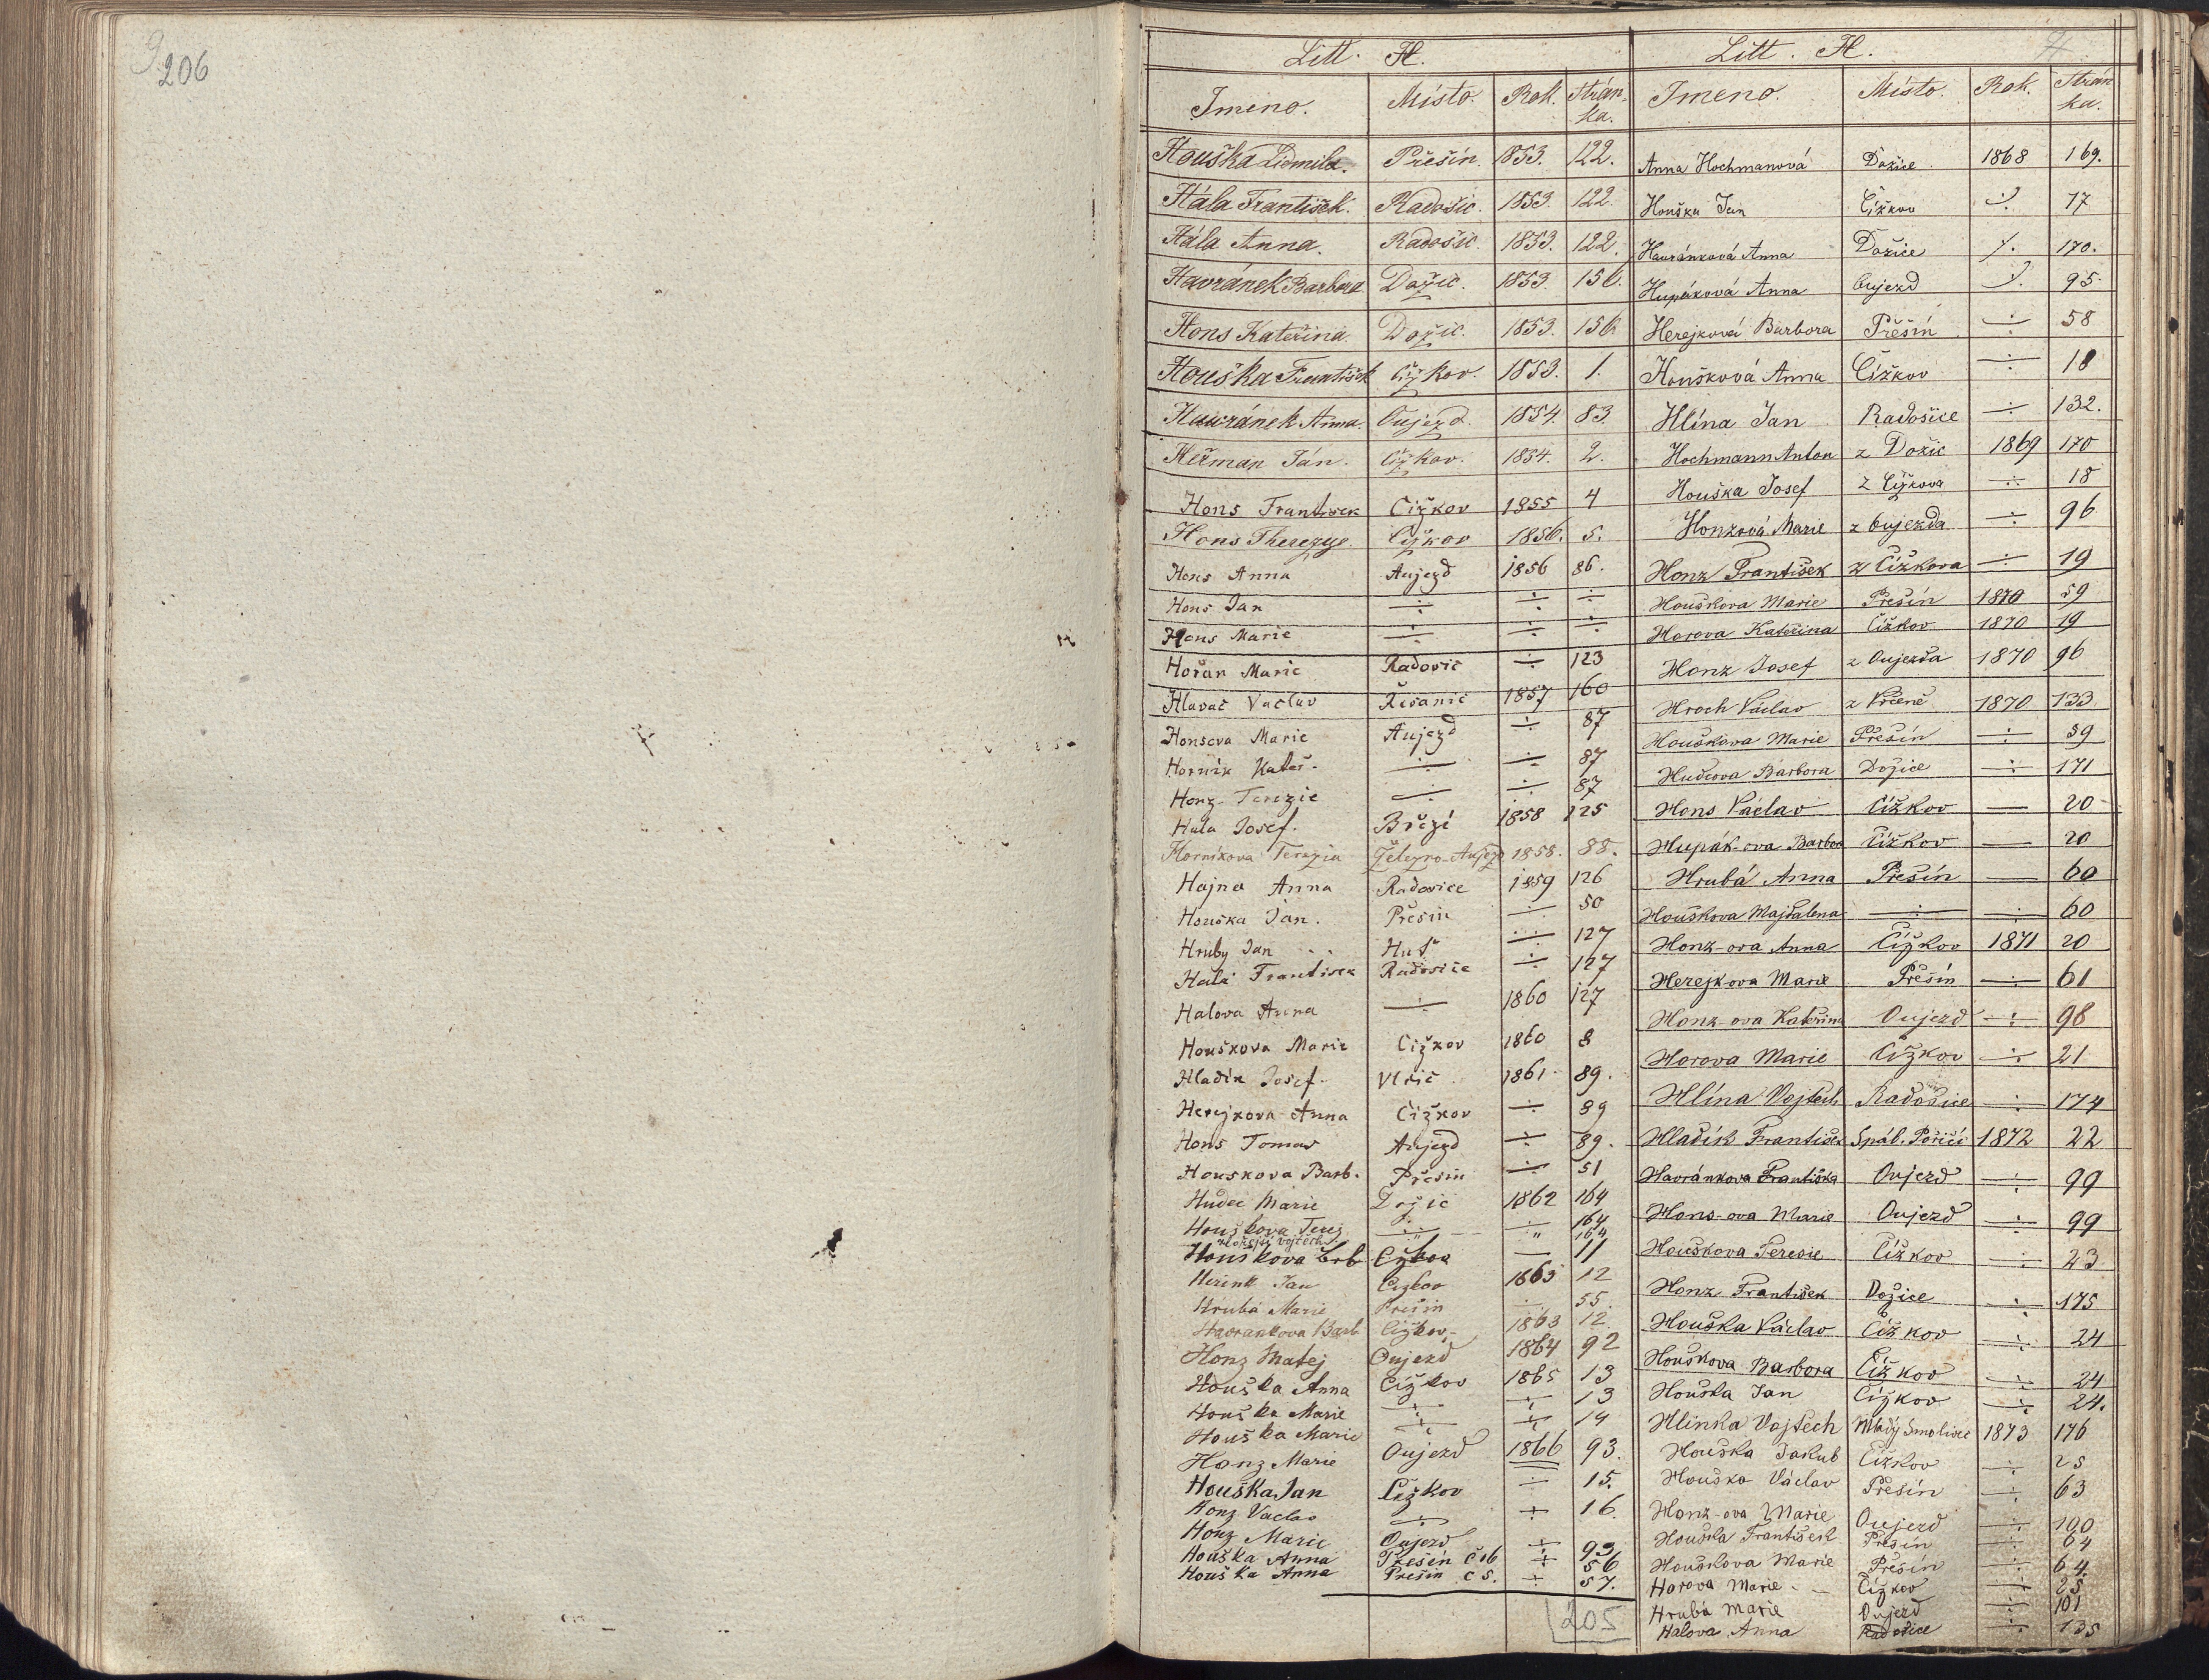 206
Litt. H.
Jmeno. Místo. Rok. Strán-
ka.
Houška Lidmila. Přešín. 1853. 122.
Hála František. Radošic. 1853. 122.
Hála Anna. Radošic. 1853. 122.
Havránek Barbora Dožic. 1853. 156.
Hons Kateřina. Dožic. 1853. 156
Houška František Čížkov. 1853. 1.
Havránek Anna. Oujezd. 1854. 83.
Heřman Ján. Čížkov. 1854. 2.
Hons Frantisek Cižkov 1855 4
Hons Therezye. Cýžkov 1856. 5.
Hons Anna Aujezd 1856 86.
Hons Jan ÷ ÷ ÷
Hons Marie ÷ ÷ ÷
Hořan Marie Radosic ÷ 123
Hlavač Vaclav Řesanic 1857 160
Honsova Marie Aujezd ÷ 87
Hornik Kateř. ÷ ÷ 87
Honz Terezie ÷ ÷ 87
Hala Josef. Březi 1858 125
Hornikova Terezia Železno-Aujezd 1858. 88.
Hajna Anna Radosice 1859 126
Houška Jan. Přesin ÷ 50
Hruby Jan Huť ÷ 127
Hala Frantisek Radosice ÷ 127
Halova Anna ÷ 1860 127
Houškova Marie Cižkov 1860 8
Hladík Josef. Vlčic 1861. 89.
Herejkova Anna Čižkov ÷ 89
Hons Tomas Aujezd ÷ 89.
Houskova Barb. Přesin ÷ 51
Hudec Marie Dožic 1862 164
Houškova Terez ÷ ÷ 164
Vojtěch " 164
Houškova Brb Cižkov — 11
Herink Jan Cizkov 1863 12
Hruba Marie Prešin ÷ 55.
Havrankova Barb Cižkov, 1863 12
Honz Matej Oujezd 1864 92
Houška Anna Cižkov 1865 13
Houška Marie ÷ ÷ 13
Houška Marie ÷ ÷ 14
Honz Marie Oujezd 1866 93.
Houška Jan Čežkov ÷ 15.
Honz Vaclav ÷ ÷ 16.
Honz Marie Oujezd ÷ 93
Houška Anna Přešin č 16 ÷ 56
Houška Anna Prešin č 5. ÷ 57.
205
Litt. H.
Jmeno. Místo. Rok. Strán
ka.
Anna Hochmanová Dožice 1868 169.
Houška Jan Čížkov ÷ 17
Havránková Anna Dožice ÷ 170.
Hupáková Anna Oujezd ÷ 95.
Herejková Barbora Přěšín ÷ 58
Houšková Anna Čížkov ÷ 18
Hlína Jan Radošice ÷ 132.
Hochmann Anton z Dožic 1869 170
Houška Josef z Čížkova ÷ 18
Honzová Marie z Oujezda ÷ 96
Honz František z Čížkova ÷ 19
Houškova Marie Přešín 1870 59
Horova Kateřina Čížkov 1870 19
Honz Josef z Oujezda 1870 96
Hroch Václav z Vrčeně 1870 133
Houškova Marie Přešín ÷ 59
Hudcova Barbora Dožice ÷ 171
Hons Václav Čížkov — 20
Hupák-ova Barbor Čížkov — 20
Hrubá Anna Přešín — 60
Houškova Majdalena ÷ ÷ 60
Honz-ova Anna Čížkov 1871 20
Herejkova Marie Přešín ÷ 61
Honz-ova Kateřina Oujezd ÷ 98
Horova Marie Čížkov ÷ 21
Hlína Vojtěch Radošice ÷ 174
Hladík František Spál. Poříčí 1872 22
Havránkova Františka Oujezd ÷ 99
Hons-ova Marie Oujezd ÷ 99
Houškova Teresie Čížkov ÷ 23
Honz František Dožice ÷ 175
Houška Václav Čížkov ÷ 24
Houškova Barbora Čížkov ÷ 24
Houška Jan Čížkov ÷ 24.
Hlinka Vojtěch Mladý Smolivec 1873 176
Houška Jakub Čížkov ÷ 25
Houška Václav Přešín ÷ 63
Honz-ova Marie Oujezd ÷ 100
Houška František Přešín ÷ 64
Houškova Marie Přešín ÷ 64.
Horova Marie Čížkov ÷ 25
Hrubá Marie Oujezd ÷ 101
Halova Anna Radošice ÷ 135